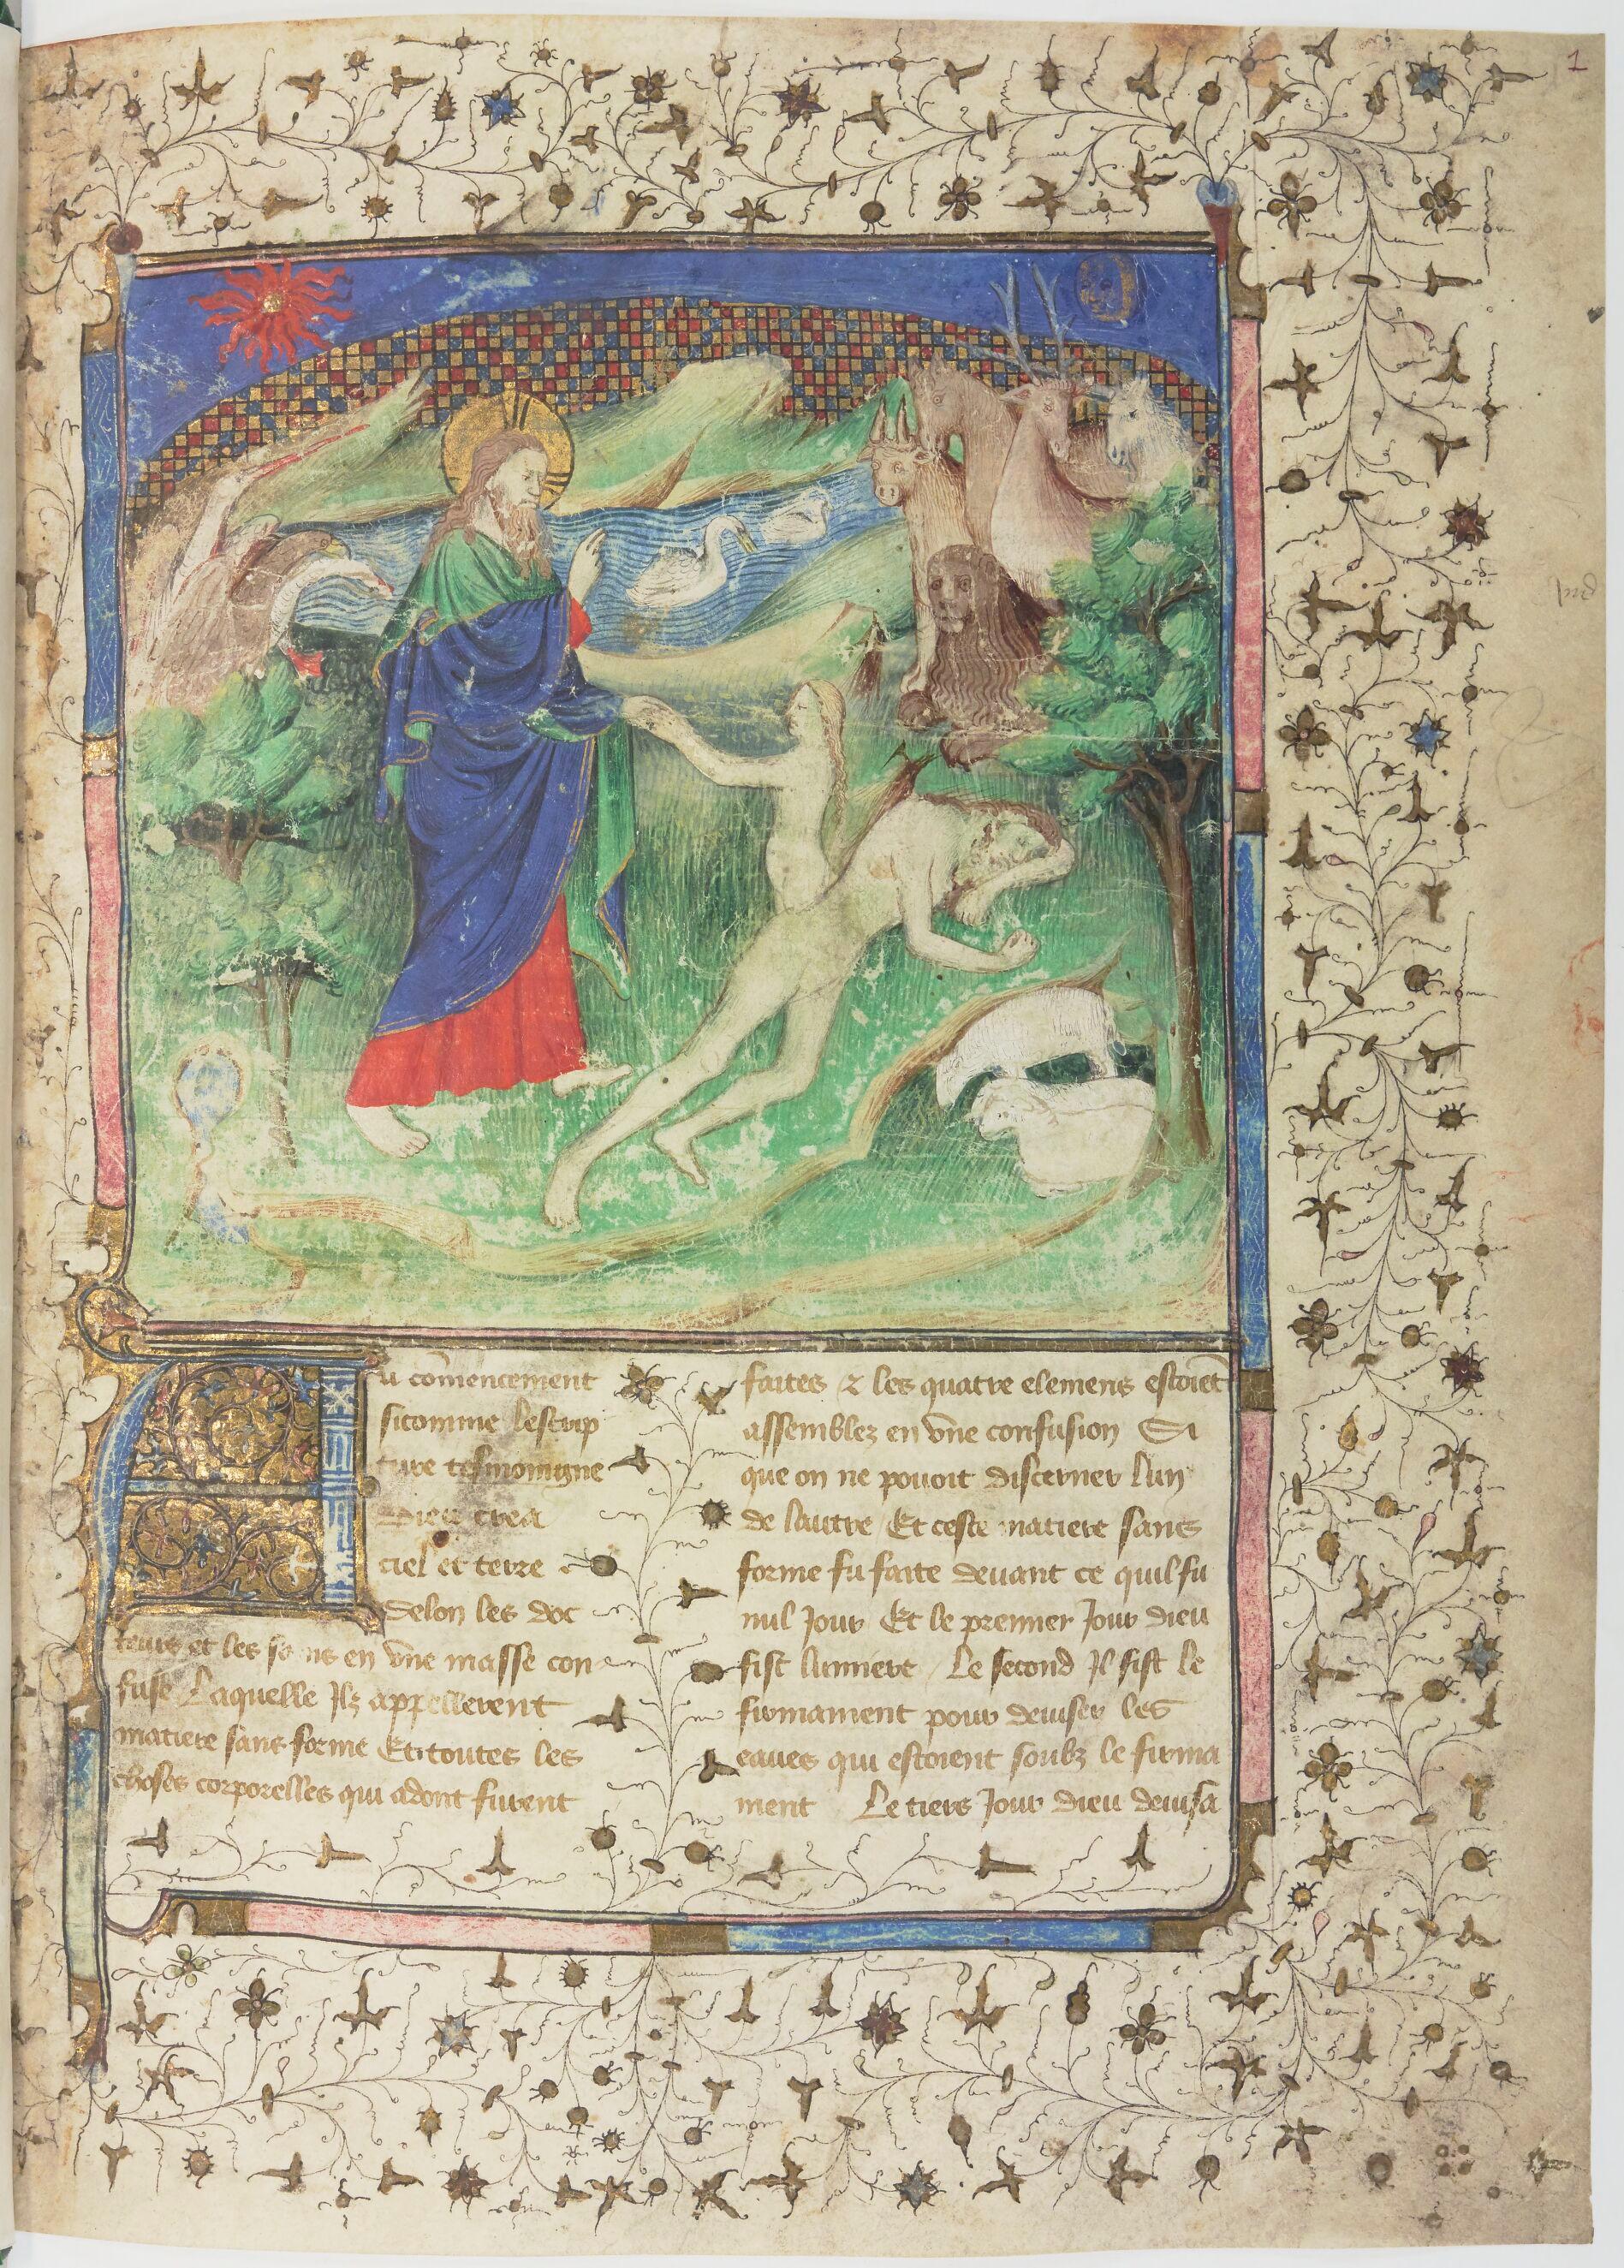 1
Au co͞mencement
sicomme lescrip
ture tesmoingne
Dieu crea
ciel et terre
Selon les doc
teurs et les en vne masse con
fuse Laquelle Ilz appellerent
matiere sans forme Et toutes les
choses corporelles qui adont furent
faites & les quatre elemens estoie͞t
assemblez en vne confusion Si
que on ne pouoit discerner lun
de lautre / Et ceste matiere sans
forme fu faite deuant ce quil fu
nul Jour Et le premier Jour dieu
fist lumiere / Le second Il fist le
firmament pour deuiser les
eaues qui estoient soubz le firma
ment Le tiers Jour dieu deuisa